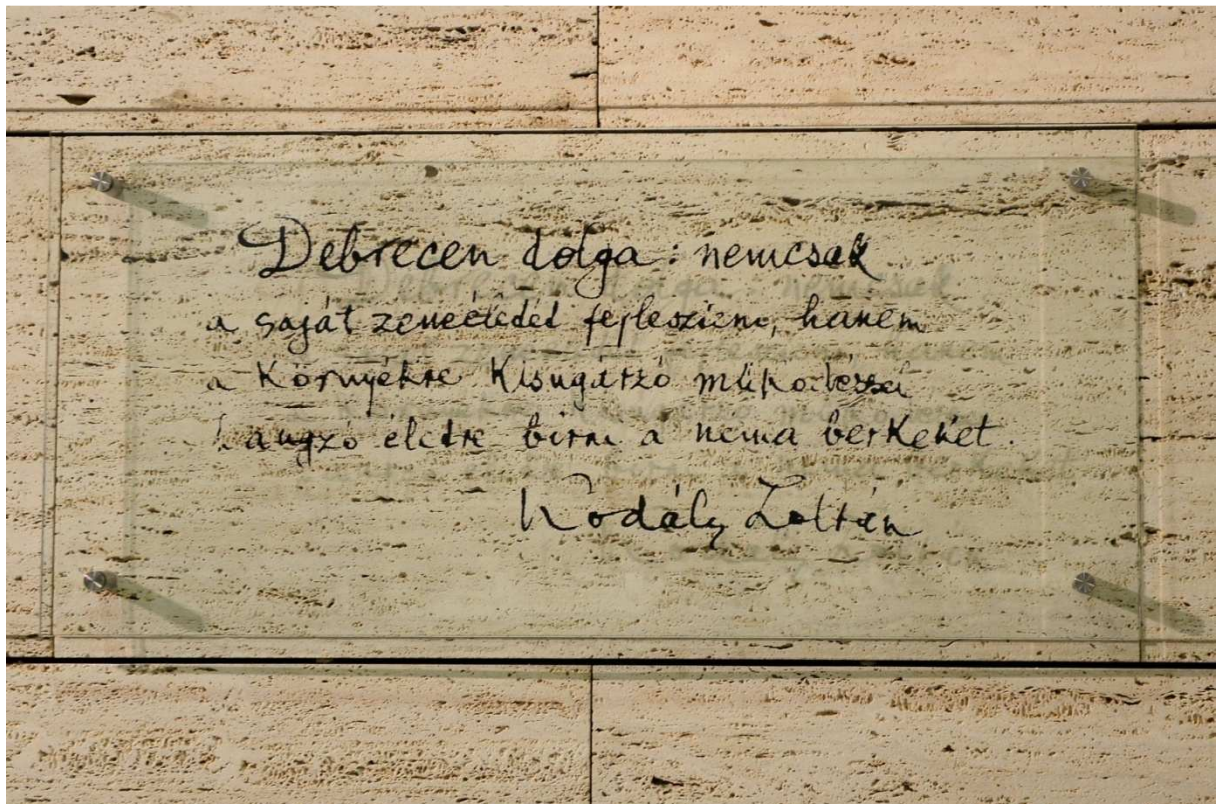 Debrecen dolga: nemcsak
a saját zeneéletét fejleszteni, hanem
a környékre kisugárzó működéssel
hangzó életre bírni a néma berkeket.
Kodály Zoltán